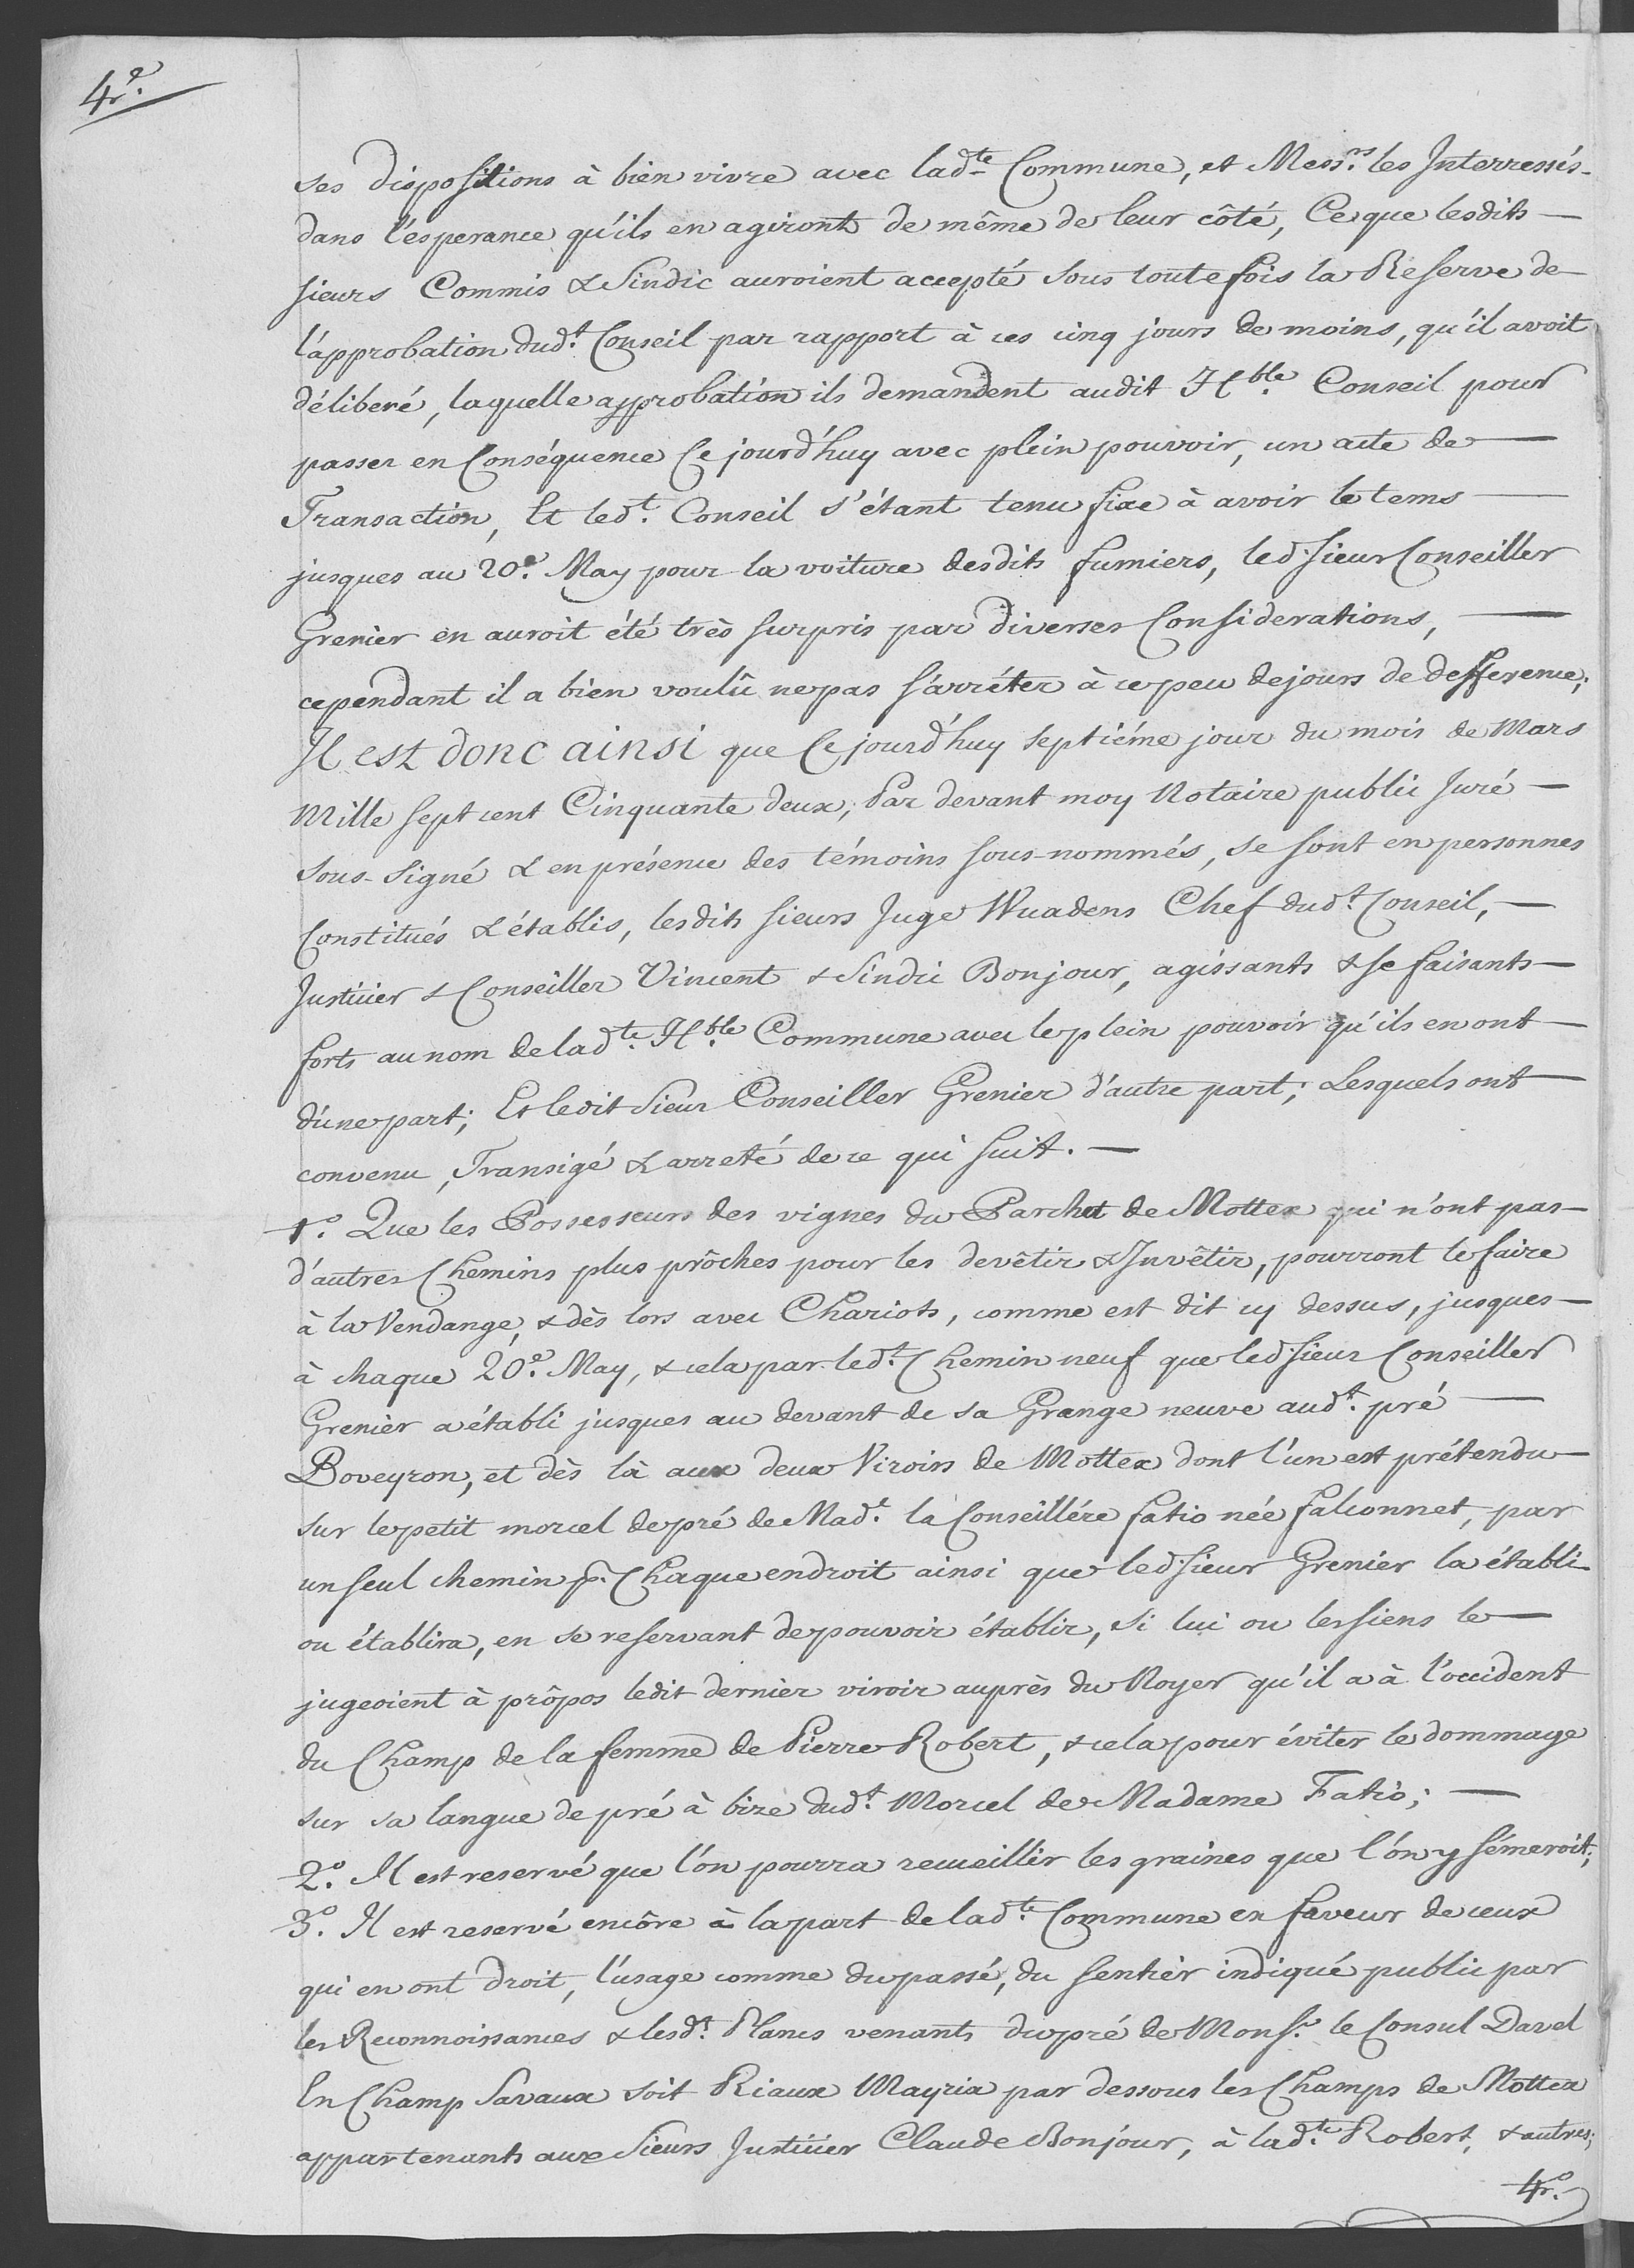 4.e
ses dispositions à bien vivre avec lad.te Commune, et Mess.rs les Interressés
dans l'ésperance qu'ils en agiront de même de leur côté, Ce que lesdits
sieurs Commis & Sindic auroient accepté sous toutefois la Reserve de
l'approbation dud.t Conseil par rapport à ces cinq jours de moins, qu'il avoit
déliberé, laquelle approbation ils demandent audit H.ble Conseil pour
passer en Conséquence Ce jourd'huy avec plein pouvoir, un acte de
Transaction, Et led.t Conseil s'étant tenu fixe à avoir le tems
jusques au 20.e May pour la voiture desdits fumiers, led. sieur Conseiller
Grenier en auroit été très surpris par diverses Considerations,
cependant il a bien voulû ne pas s'arréter à ce peu de jours de defference;
Il est donc ainsi que Ce jourd'huy septiéme jour du mois de Mars
Mille sept cent Cinquante deux, Par devant moy Notaire public Juré
sous-signé & en présence des témoins sous-nommés, se sont en personnes
Constitués & établis, lesdits sieurs Juge Wuadens Chef dud.t Conseil,
Justicier & Conseiller Vincent & Sindic Bonjour, agissants & se faisants
forts au nom de lad.te H.ble Commune avec le plein pouvoir qu'ils en ont
d'une part; Et ledit Sieur Conseiller Grenier d'autre part; Lesquels ont
convenu, Transigé & arreté de ce qui suit.
1.o Que les Possesseurs des vignes du Parchet de Mottex qui n'ont pas
d'autres Chemins plus prôches pour les devêtir & Invêtir, pourront le faire
à la Vendange, & dès lors avec Chariots, comme est dit cy dessus, jusques
à chaque 20.e May, & cela par led.t Chemin neuf que led. sieur Conseiller
Grenier a établi jusques au devant de sa Grange neuve aud.t pré
Boveyron, et dès là aux deux Viroirs de Mottex dont l'un est prétendu
sur le petit morcel de pré de Mad.e la Conseillére Fatio née Falconnet, par
un seul chemin p.r Chaque endroit ainsi que led. sieur Grenier la établi
ou établira, en se reservant de pouvoir établir, si lui ou les siens le
jugeoient à prôpos ledit dernier viroir auprès du Noyer qu'il a à l'occident
du Champ de la femme de Pierre Robert, & cela pour éviter le dommage
sur sa langue de pré à bize dud.t Morcel de Madame Fatio;
2.o Il est reservé que l'on pourra recueillir les graines que l'on y sémeroit;
3.o Il est reservé encôre à la part de lad.te Commune en faveur de ceux
qui en ont droit, l'usage comme du passé, du sentier indiqué public par
les Reconnoissances & lesd.t Plans venants du pré de Mons.r le Consul Davel
En Champ Savaux soit Riaux Mayria par dessous les Champs de Mottex
appartenants aux Sieurs Justicier Claude Bonjour, à lad.te Robert, & autres;
4.o